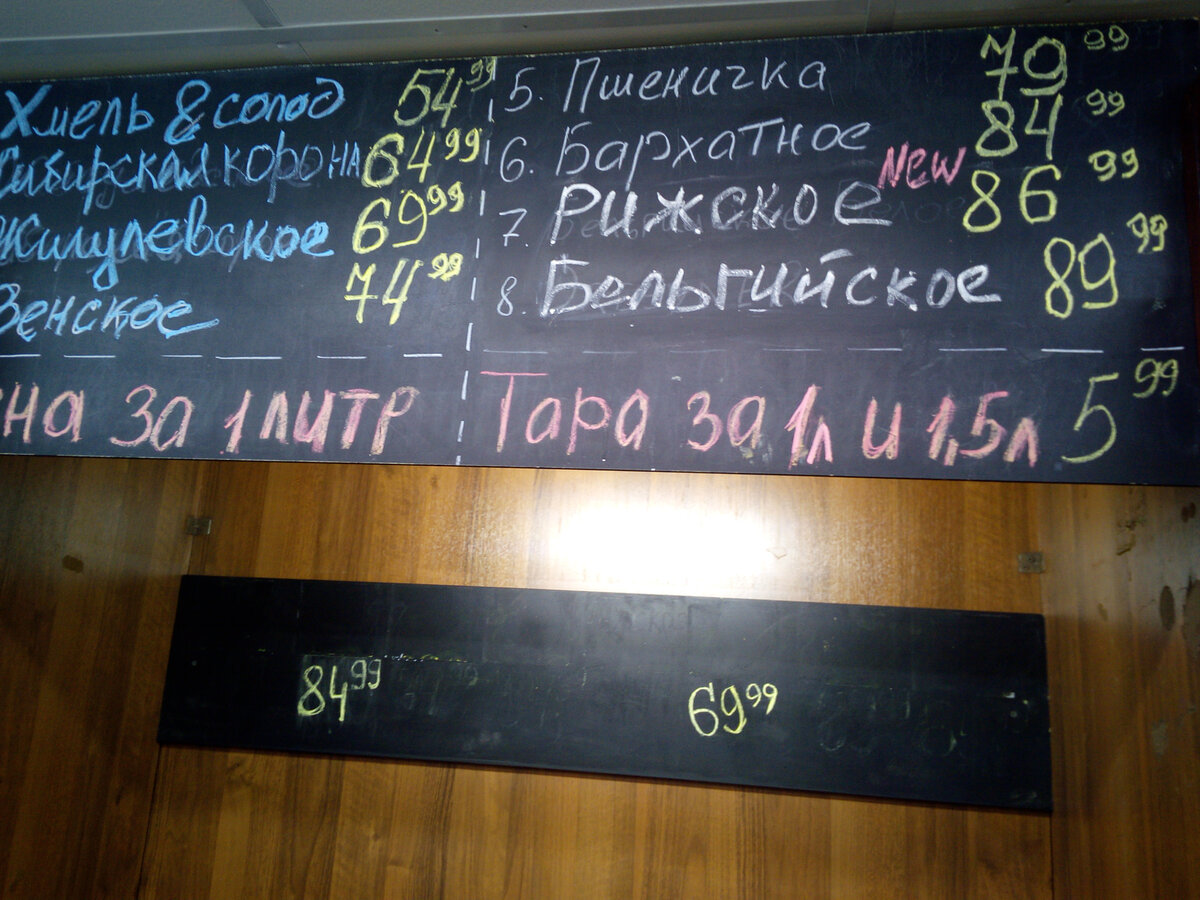 Хмель & солод 54 99
Сибирская корона 64 99
Жигулевское 69 99
Венское 74 99
на за 1 литр
5. Пшеничка 79 99
6. Бархатное 84 99
7. Рижское New 86 99
8. Бельгийское 89 99
Тара за 1л и 1,5л 5 99
84 99
69 99